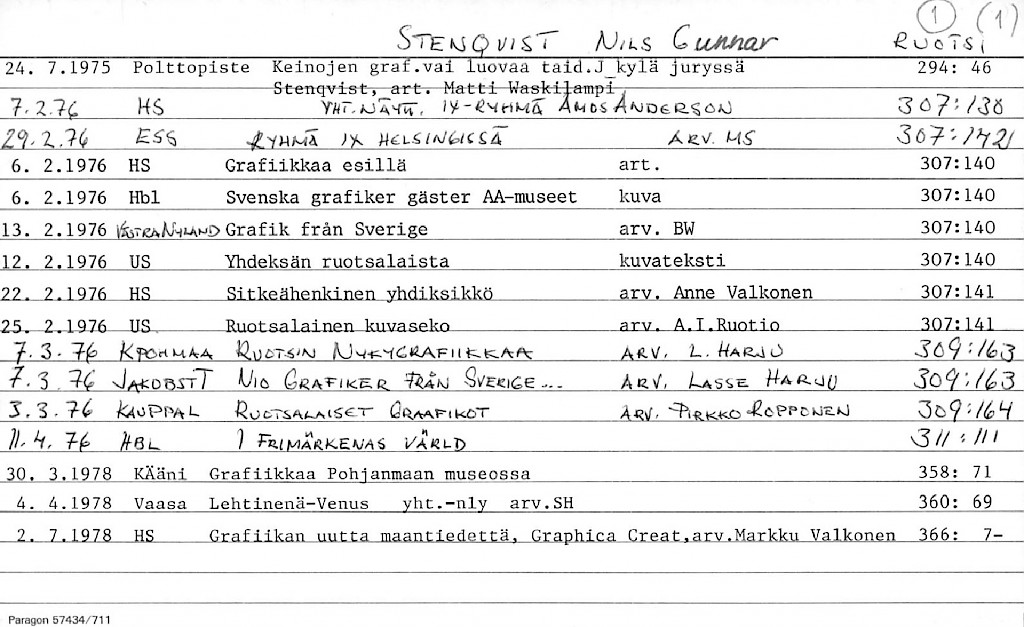 1 (1)
STENQVIST NILS Gunnar RUOTSI
24. 7.1975 Polttopiste Keinojen graf.vai luovaa taid.J_kylä juryssä 294: 46
Stenqvist, art. Matti Waskilampi
7.2.76 HS YHT.NÄYTT. IX-RYHMÄ AMOS ANDERSON 307:138
29.2.76 ESS RYHMÄ IX HELSINGISSÄ ARV. MS 307:142
6. 2.1976 HS Grafiikkaa esillä art. 307:140
6. 2.1976 Hbl Svenska grafiker gäster AA-museet kuva 307:140
13. 2.1976 VÄSTRA NYLAND Grafik från Sverige arv. BW 307:140
12. 2.1976 US Yhdeksän ruotsalaista kuvateksti 307:140
22. 2.1976 HS Sitkeähenkinen yhdiksikkö arv. Anne Valkonen 307:141
25. 2.1976 US Ruotsalainen kuvaseko arv. A.I.Ruotio 307:141
7.3.76 KPOHMAA RUOTSIN NYKYGRAFIIKKAA ARV. L. HARJU 309:163
7.3.76 JAKOBSTT NIO GRAFIKER FRÅN SVERIGE... ARV. LASSE HARJU 309:163
3.3.76 KAUPPAL RUOTSALAISET GRAAFIKOT ARV. PIRKKO ROPPONEN 309:164
11.4.76 HBL I FRIMÄRKENAS VÄRLD 311:111
30. 3.1978 KÄäni Grafiikkaa Pohjanmaan museossa 358: 71
4. 4.1978 Vaasa Lehtinenä-Venus yht.-nly arv.SH 360: 69
2. 7.1978 HS Grafiikan uutta maantiedettä, Graphica Creat,arv.Markku Valkonen 366: 7-
Paragon 57434/711